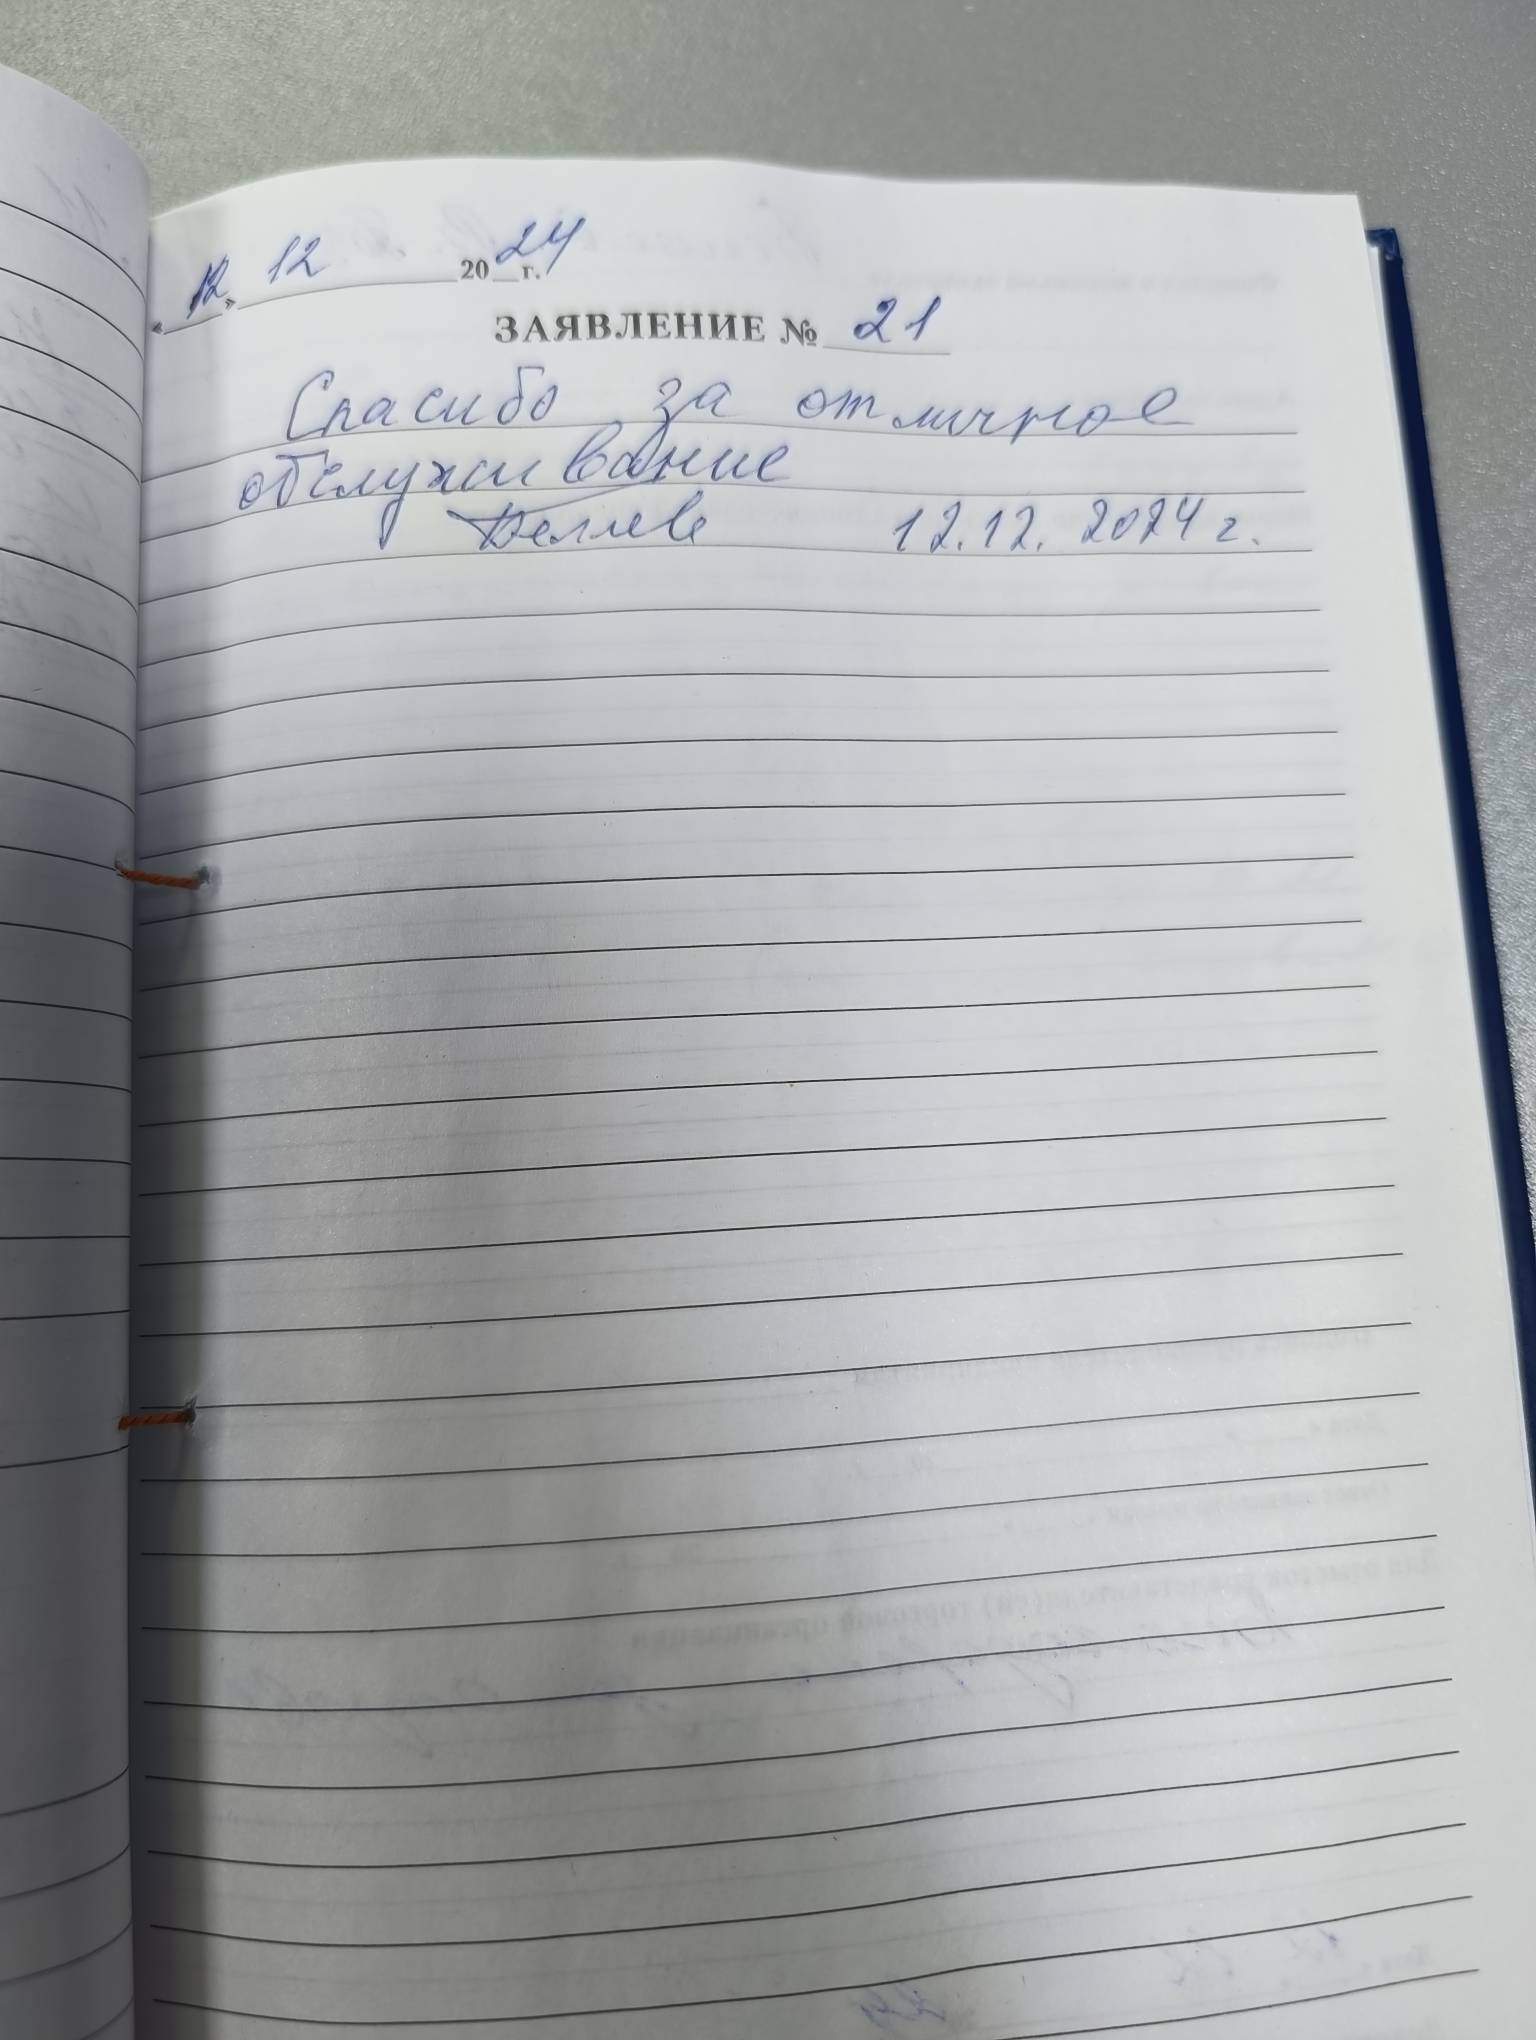 « 12 » 12 2024 г.
ЗАЯВЛЕНИЕ № 21
Спасибо за отличное
обслуживание
12.12.2024 г.